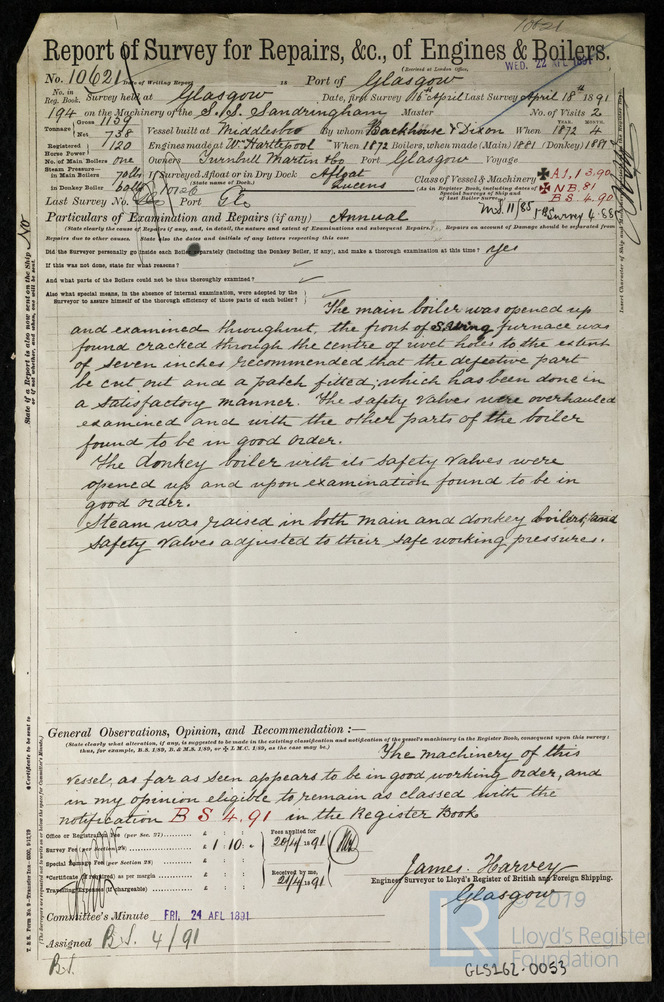 10621
Report of Survey for Repairs, &c., of Engines & Boilers.
(Received at London Office, WED. 22 APL 1891
No. 10621 Date of Writing Report is Port of Glasgow
No. in Reg. Book. Survey held at Glasgow Date, first Survey 16th April Last Survey April 18th 1891
194 on the Machinery of the S.S. Sandringham Master No. of Visits 2
Tonnage Gross 1139 Net 738 Vessel built at Middlesbro By whom Backhouse & Dixon When YEAR. 1872 MONTH. 4
Registered Horse Power 120 Engines made at W. Hartlepool When 1872 Boilers, when made (Main) 1881 (Donkey) 1881
No. of Main Boilers one Owners Turnbull Martin & Co Port Glasgow Voyage
Steam Pressure in Main Boilers 70lbs If Surveyed Afloat or in Dry Dock Afloat Class of Vessel & Machinery A1, 13.90
in Donkey Boiler 60lbs (State name of Dock.) Queens (As in Register Book, including dates of Special Surveys of Ship and of last Boiler Survey) NB.81
B S. 4.90
Last Survey No. Port Gls
Particulars of Examination and Repairs (if any) Annual
(State clearly the cause of Repairs if any, and, in detail, the nature and extent of Examinations and subsequent Repairs. Repairs on account of Damage should be separated from
Repairs due to other causes. State also the dates and initials of any letters respecting this case
Did the Surveyor personally go inside each Boiler separately (including the Donkey Boiler, if any), and make a thorough examination at this time? Yes
If this was not done, state for what reasons?
And what parts of the Boilers could not be thus thoroughly examined?
Also what special means, in the absence of internal examination, were adopted by the
Surveyor to assure himself of the thorough efficiency of those parts of each boiler?
The main boiler was opened up
and examined throughout, the front of S. Wing furnace was
found cracked through the centre of rivet holes to the extent
of seven inches recommended that the defective part
be cut out and a patch fitted; which has been done in
a satisfactory manner. The safety valves were overhauled
examined and with the other parts of the boiler
found to be in good order.
The donkey boiler with its safety valves were
opened up and upon examination found to be in
good order.
Steam was raised in both main and donkey boilers, and
safety valves adjusted to their safe working pressures.
General Observations, Opinion, and Recommendation :—
(State clearly what alteration, if any, is suggested to be made in the existing classification and notification of the vessel's machinery in the Register Book, consequent upon this survey:
thus, for example, B.S. 1/89, B.& M.S. 1/89, or L.M.C. 1/89, as the case may be.)
The machinery of this
vessel, as far as seen appears to be in good working order, and
in my opinion eligible to remain as classed with the
notification B S 4.91 in the Register Book
Office or Registration Fee (per Sec. 27) £ : :
Survey Fee (per Section 28) £ 1 : 10 : -
Special Damage Fee (per Section 28) £ : :
*Certificate (if required) as per margin £ : :
Travelling Expenses (if chargeable) £ : :
Fees applied for 20/4/1891
Received by me, 21/4/1891
James Harvey
Engineer Surveyor to Lloyd's Register of British and Foreign Shipping.
Glasgow
Committee's Minute FRI. 24 APL 1891
Assigned B.S. 4/91
B.S.
© 2019
LR
Lloyd's Register
Foundation
GLS162-0053